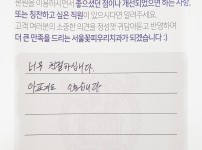 본원을 이용하시면서 좋으셨던 점이나 개선되었으면 하는 사항,
또는 칭찬하고 싶은 직원이 있으시다면 알려주세요.
고객 여러분의 소중한 의견을 정성껏 귀담아듣고 반영하여
더 큰 만족을 드리는 서울꽃피우리치과가 되겠습니다 :)
너무 친절하십니다.
안아프게